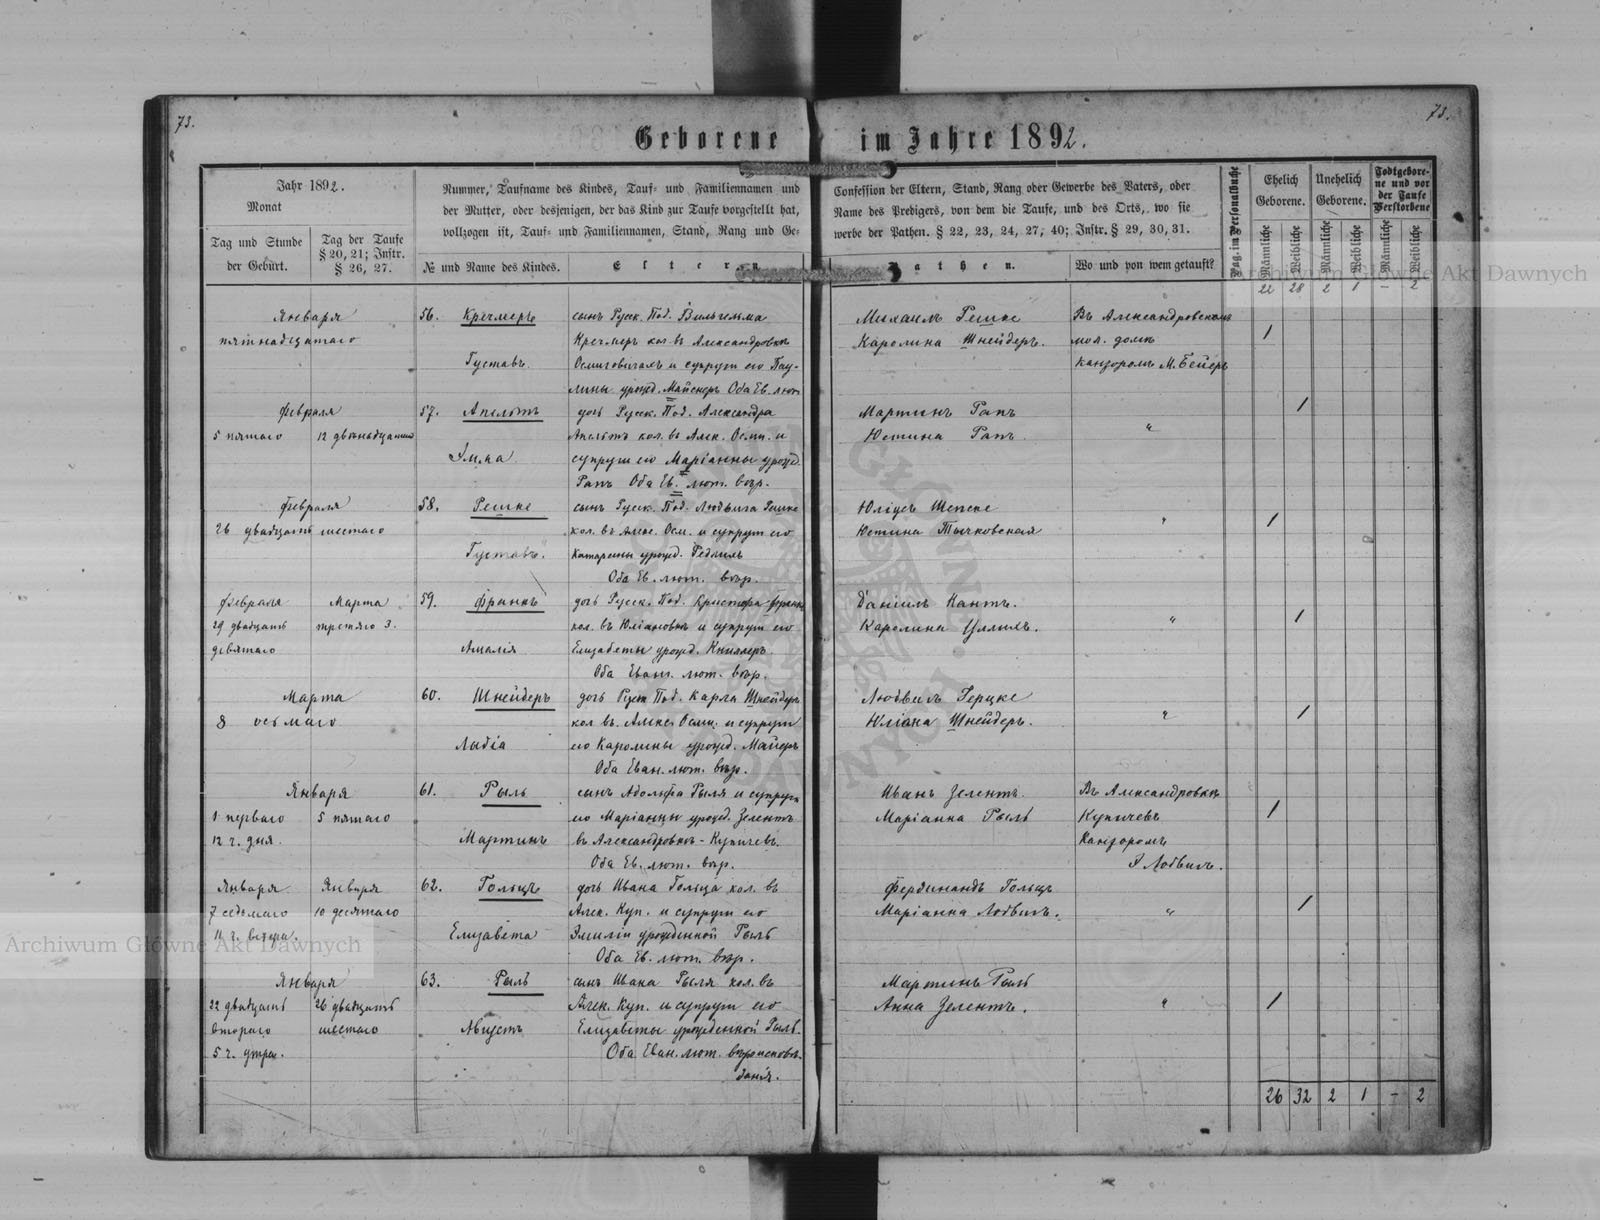 73.
73.
Geborene im Jahre 1892.
Jahr 1892.
Monat
Tag und Stunde
der Geburt.
Tag der Taufe
§ 20, 21; Instr.
§ 26, 27.
Nummer, Taufname des Kindes, Tauf- und Familiennamen und
der Mutter, oder desjenigen, der das Kind zur Taufe vorgestellt hat,
vollzogen ist, Tauf- und Familiennamen, Stand, Rang und Ge-
№ und Name des Kindes.
Eltern
Confession der Eltern, Stand, Rang oder Gewerbe des Vaters, oder
Name des Predigers, von dem die Taufe, und des Orts, wo sie
werbe der Pathen. § 22, 23, 24, 27, 40; Instr. § 29, 30, 31.
Pathen.
Wo und von wem getauft?
Pag. im Personalbuche
Ehelich
Geborene.
Unehelich
Geborene.
Todtgebore-
ne und vor
der Taufe
Verstorbene
Männliche
Weibliche
Männliche
Weibliche
Männliche
Weibliche
22 28 2 1 - 2
Января
пятнадцатаго
56. Кречмеръ
Густавъ
сынъ Русск. Под. Вильгельма
Кречмеръ кол. въ Александровкѣ
и супруги его Пау-
лины урожд. Майснеръ Оба Ев. лют.
Михаилъ Решке
Каролина Шнейдеръ.
Въ Александровскомъ
мол. домѣ
канторомъ М. Бейеръ
1
Февраля
5 пятаго 12 двѣнадцатаго
57. Апельтъ
Эмма
дочь Русск. Под. Александра
Апельтъ кол. въ Алек. Осми. и
супруги его Маріанны урожд.
Рапъ Оба Ев. лют. вѣр.
Мартинъ Рапъ
Юстина Рапъ
"
1
Февраля
26 двадцать шестаго
58. Решке
Густавъ.
сынъ Русск. Под. Людвига Решке
кол. въ Алекс. Осм. и супруги его
Катарины урожд. Редлихъ
Оба Ев. лют. вѣр.
Юліусъ Шепске
Юстина Тычковская
"
1
Февраля Марта
29 двадцать третяго 3.
девятаго
59. Франкъ
Амалія
дочь Русск. Под. Кристофа Франкъ
кол. въ Юліановкѣ и супруги его
Елизабеты урожд. Книллеръ.
Оба Еван. лют. вѣр.
Даніилъ Кантъ.
Каролина Уллихъ.
"
1
Марта
8 осьмаго
60. Шнейдеръ
Лидія
дочь Русск Под. Карла Шнейдеръ
кол въ. Алекс. Осми. и супруги
его Каролины урожд. Майеръ
Оба Еван. лют. вѣр.
Людвигъ Герцке
Юліана Шнейдеръ.
"
1
Января
1 перваго 5 пятаго
12 ч. дня.
61. Рыль
Мартинъ
сынъ Адольфа Рыля и супруги
его Маріанны урожд. Зелентъ
въ Александровкѣ-Купичевъ.
Оба Ев. лют. вѣр.
Иванъ Зелентъ.
Маріанна Рыль
Въ Александровкѣ
Купичевъ
Канторомъ
Лодвихъ.
1
Января Января
7 седьмаго 10 десятаго
11 ч. вечера.
62. Гольцъ
Елизавета
дочь Ивана Гольца кол. въ
Алек. Куп. и супруги его
Эмиліи урожденной Рыль
Оба Ев. лют. вѣр.
Фердинандъ Гольцъ
Маріанна Лодвихъ.
"
1
Января
22 двадцать 26 двадцать
втораго шестаго
5 ч. утра.
63. Рыль
Августъ
сынъ Ивана Рыля кол. въ
Алек. Куп. и супруги его
Елизаветы урожденной Рыль.
Оба Еван. лют. вѣроисповѣ-
данія.
Мартинъ Рыль
Анна Зелентъ.
"
1
26 32 2 1 - 2
Archiwum Główne Akt Dawnych
Archiwum Główne Akt Dawnych